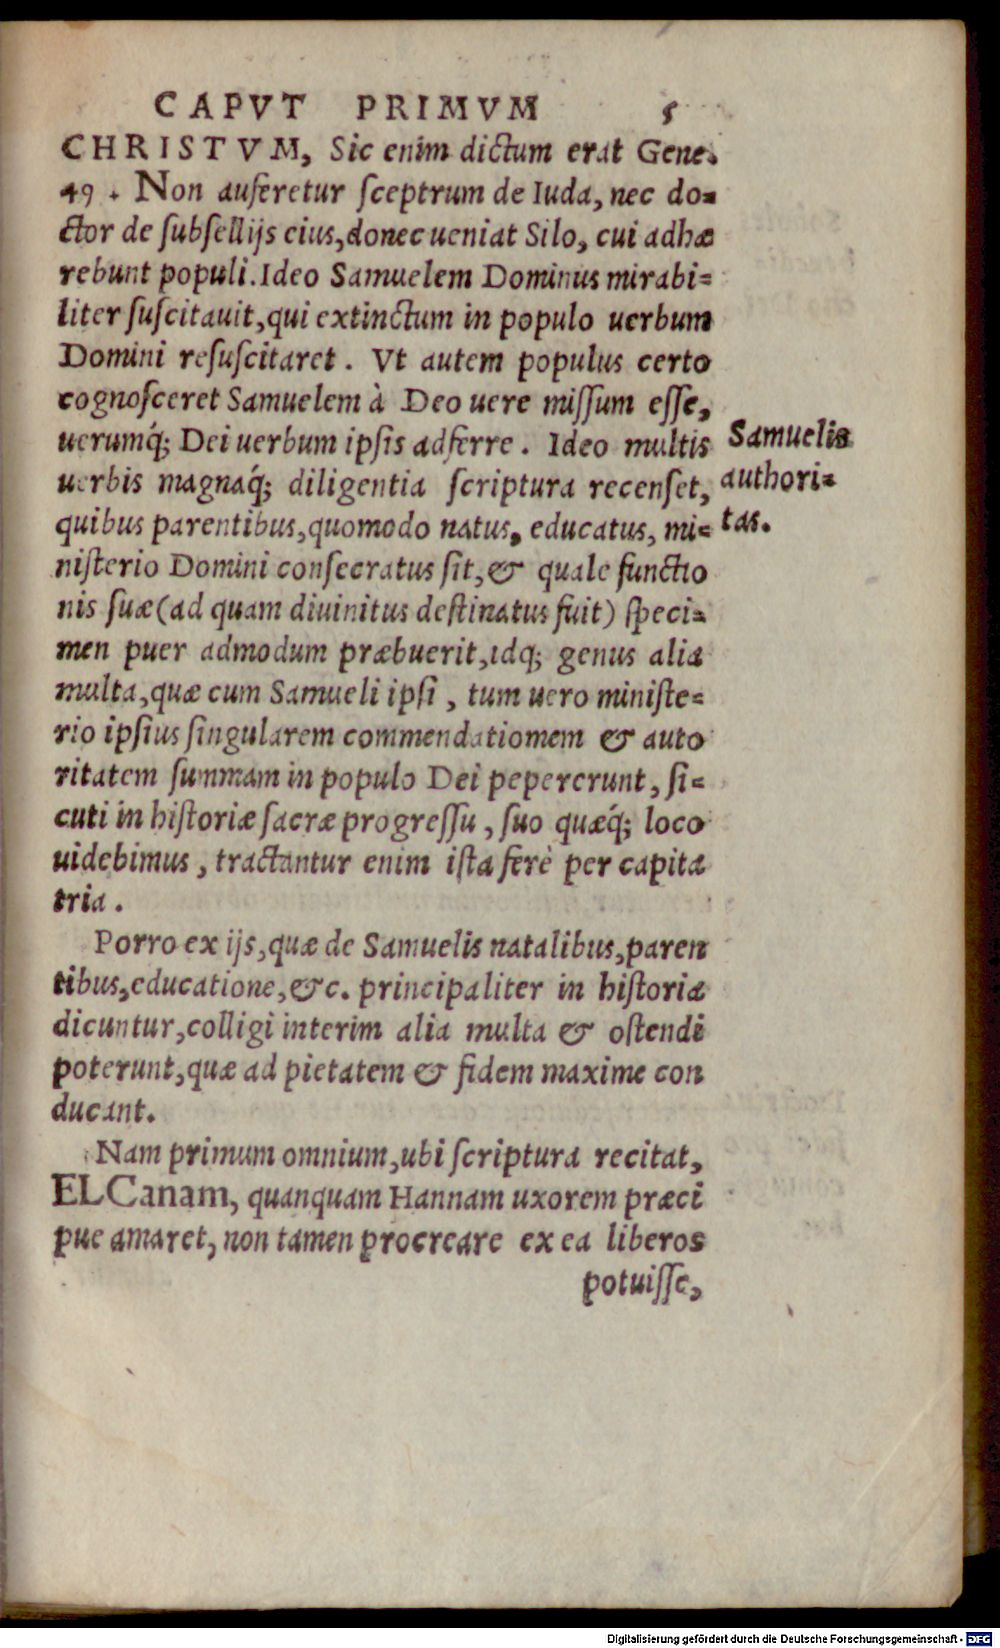 CAPVT PRIMVM 5
CHRISTVM, Sic enim dictum erat Gene.
49. Non auferetur ſceptrum de Iuda, nec do=
ctor de ſubſellijs eius, donec ueniat Silo, cui adhæ
rebunt populi. Ideo Samuelem Dominus mirabi=
liter ſuſcitauit, qui extinctum in populo uerbum
Domini reſuſcitaret. Vt autem populus certo
cognoſceret Samuelem à Deo uere miſſum eſſe,
uerumq́; Dei uerbum ipſis adferre. Ideo multis
uerbis magnaq́; diligentia ſcriptura recenſet,
quibus parentibus, quomodo natus, educatus, mi=
niſterio Domini conſecratus ſit, & quale functio
nis ſuæ (ad quam diuinitus deſtinatus fuit) ſpeci=
men puer admodum præbuerit, idq; genus alia
multa, quæ cum Samueli ipſi, tum uero miniſte=
rio ipſius ſingularem commendatiomem & auto
ritatem ſummam in populo Dei pepererunt, ſi=
cuti in hiſtoriæ ſacræ progreſſu, ſuo quæq́; loco
uidebimus, tractantur enim iſta ferè per capita
tria.
Samuelis
authori=
tas.
Porro ex ijs, quæ de Samuelis natalibus, paren
tibus, educatione, &c. principaliter in hiſtoria
dicuntur, colligi interim alia multa & oſtendi
poterunt, quæ ad pietatem & fidem maxime con
ducant.
Nam primum omnium, ubi ſcriptura recitat,
ELCanam, quanquam Hannam uxorem præci
pue amaret, non tamen procreare ex ea liberos
potuiſſe,
Digitalisierung gefördert durch die Deutsche Forschungsgemeinschaft - DFG